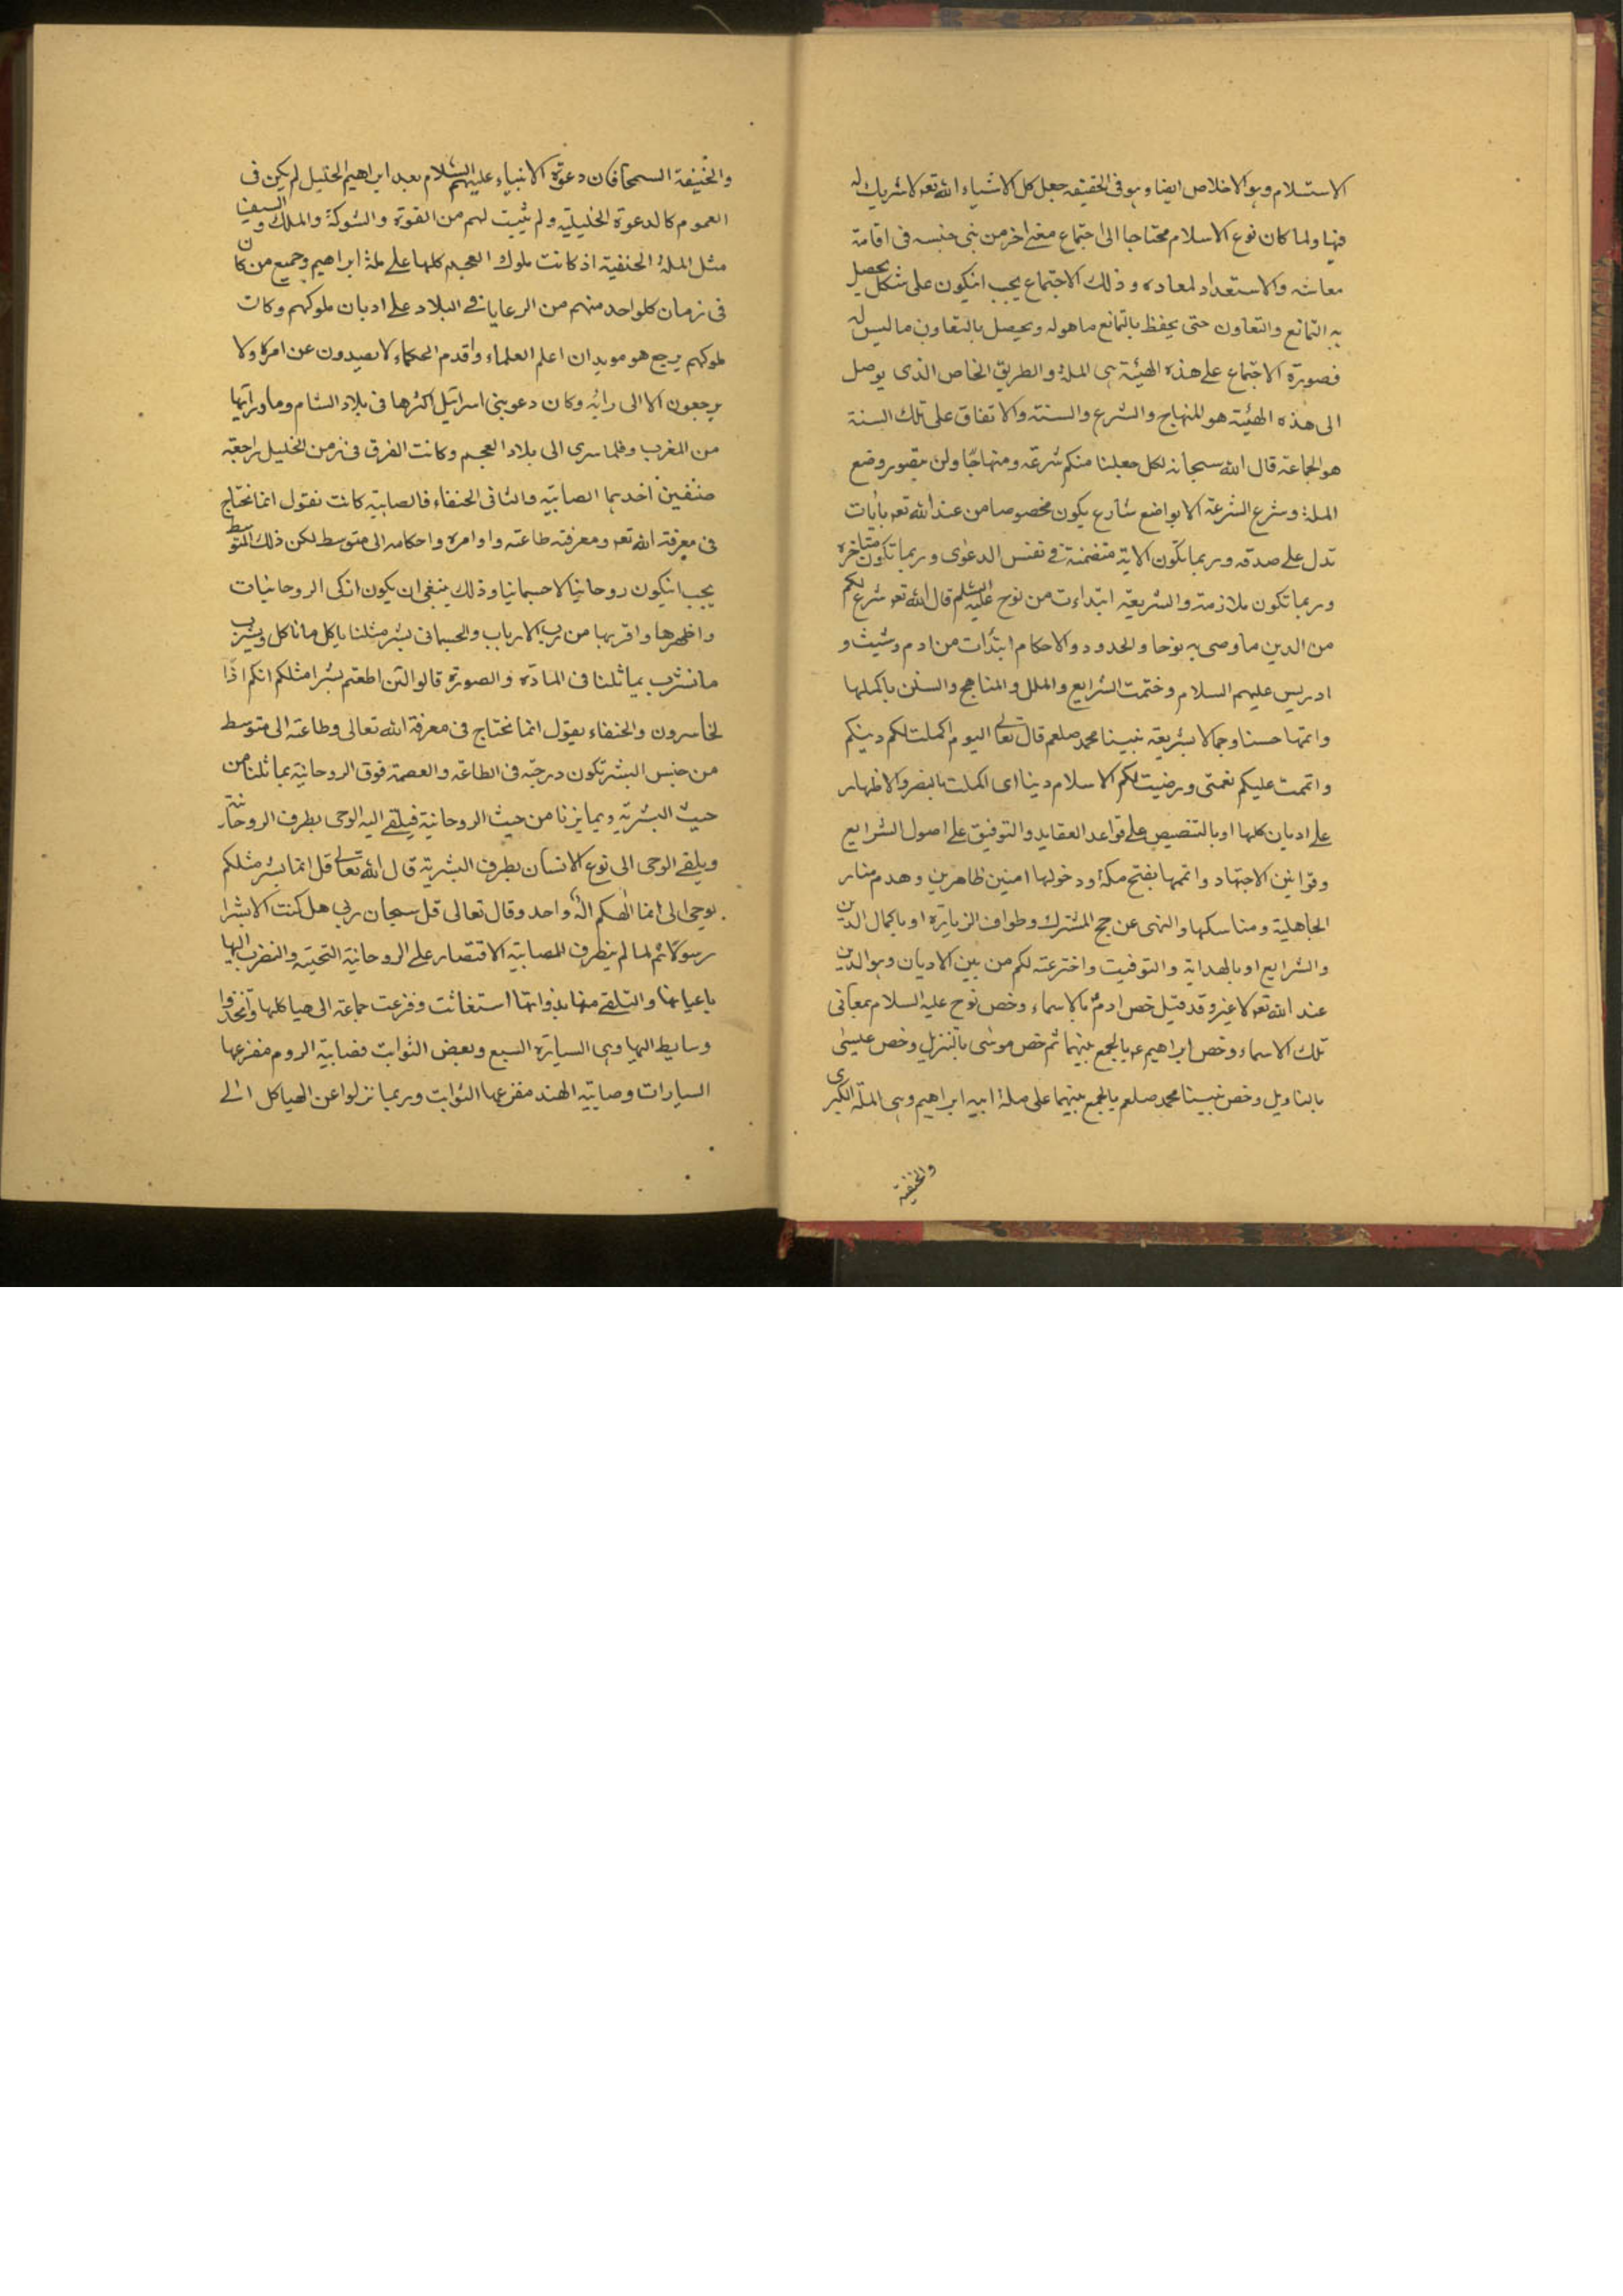 الاستسلام وهو الاخلاص ايضا وهو فى الحقيقه جعل كل الاشياء الله تعه لا شريك له
فيها ولما كان نوع الاسلام محتاجا الى اجتماع مع اخر من بنى جنسه فى اقامة
معاشه والاستعداد لمعاده وذلك الاجتماع يجب انيكون على شكل يحصل
به التمانع والتعاون حتى يحفظ بالتمانع ما هوله ويحصل بالتعاون ما ليس له
فصورة الاجتماع على هذه الهيئة هى الملة والطريق الخاص الذى يوصل
الى هذه الهيئة هو المنهاج والشرع والسنة والاتفاق على تلك السنة
هو الجماعة قال الله سبحانه لكل جعلنا منكم شرعة ومنهاجا ولن يتصور وضع
الملة وشرع الشرعة الا بواضع شارع يكون مخصوصا من عند الله تعه بأيات
تدل على صدقه وربما تكون الاية متضمنة فى نفس الدعوى وربما تكون متاخره
وربما تكون ملازمة والشريعة ابتداءت من نوح عليه السلم قال الله تعه شرع لكم
من الدين ما وصى به نوحا والحدود والاحكام ابتدأت من ادم وشيث و
ادريس عليهم السلام وختمت الشرايع والملل والمناهج والسنن باكملها
واتمها حسنا وجمالا بشريعة نبينا محمد صلعم قال تعالى اليوم اكملت لكم دينكم
واتممت عليكم نعمتى ورضيت لكم الاسلام دينا اى اكملت بالنصر والاظهار
على اديان كلها او بالتنصيص على قواعد العقايد والتوفيق على اصول الشرايع
وقوانين الاجتهاد واتمها بفتح مكة ودخولها امنين ظاهرين وهدم منار
الجاهلية ومناسكها والنهى عن حج المشرك وطواف الزيارة او باكمال الدين
والشرايع او بالهداية والتوفيت واخترعته لكم من بين الاديان وهو الدين
عند الله تعه لا غير وقد قيل خص ادم بالاسماء وخص نوح عليه السلام بمعانى
تلك الاسماء وخص ابراهيم عه بالجمع بينهما ثم خص موسى بالتنزيل وخص عيسى
بالتاويل وخص نبينا محمد صلعم بالجمع بينهما على ملة ابيه ابراهيم وهى الملة الكبرى
والحنيفة
والحنيفة السمحا فكان دعوة الانبياء عليهم السلام بعد ابراهيم الخليل لم يكن فى
العموم كالدعوة الخليلية ولم ثيبت لهم من القوة والشوكة والملك والسيف
مثل الملة الحنفية اذ كانت ملوك العجم كلها على ملة ابراهيم وجميع من كان
فى زمان كلواحد منهم من الرعايا فى البلاد على اديان ملوكهم وكات
لموكهم يرجع هو موبدان اعلم العلماء واقدم الحكماء لا يصيدون عن امره ولا
يرجعون الا الى رائه وكان دعو بنى اسراتيل اكثرها فى بلاد الشام وما ورائها
من المغرب وقلما سرى الى بلاد العجم وكانت الفرق فى زمن الخليل راجعة
صنفين احدهما الصابية والثانى الحنفاء فالصابية كانت تقول انما نحتاج
فى معرفة الله تعه ومعرفة طاعته واوامره واحكامه الى متوسط لكن ذلك المتوسط
يجب انيكون روحانيا لا جسمانيا وذلك ينبغى ان يكون ازكى الروحانيات
واظهرها واقربها من رب الارباب والجسمانى بشر مثلنا ياكل ما ناكل ويشرب
ما نشرب يماثلنا فى المادة والصورة قالوا لئن اطعتم بشرا مثلكم انكم اذا
لخاسرون والحنفاء يقول انما نحتاج فى معرفة الله تعالى وطاعته الى متوسط
من جنس البشر تكون درجته فى الطاعه والعصمة فوق الروحانية يماثلنا من
حيث البشرية ويمايزنا من حيث الروحانية فيلقى اليه الوحى بطرف الروحانية
ويلقى الوحى الى نوع الانسان بطرف البشرية قال الله تعالى قل انما بشر مثلكم
يوحى الى انما الهكم اله واحد وقال تعالى قل سبحان ربى هل كنت الا بشرا
رسولا ثم لما لم يتطرف للصابية الاقتصار على الروحانية التحيته والتضرب اليها
باعيانها والتلقى منها بذواتها استغاثت وفزعت جماعة الى هياكلها واتخذوا
وسايط اليها وهى السيارة السبع وبعض الثوابت فصابية الروم مفزعها
السيارات وصابية الهند مفزعها الثوابت وربما نزلوا عن الهياكل الى